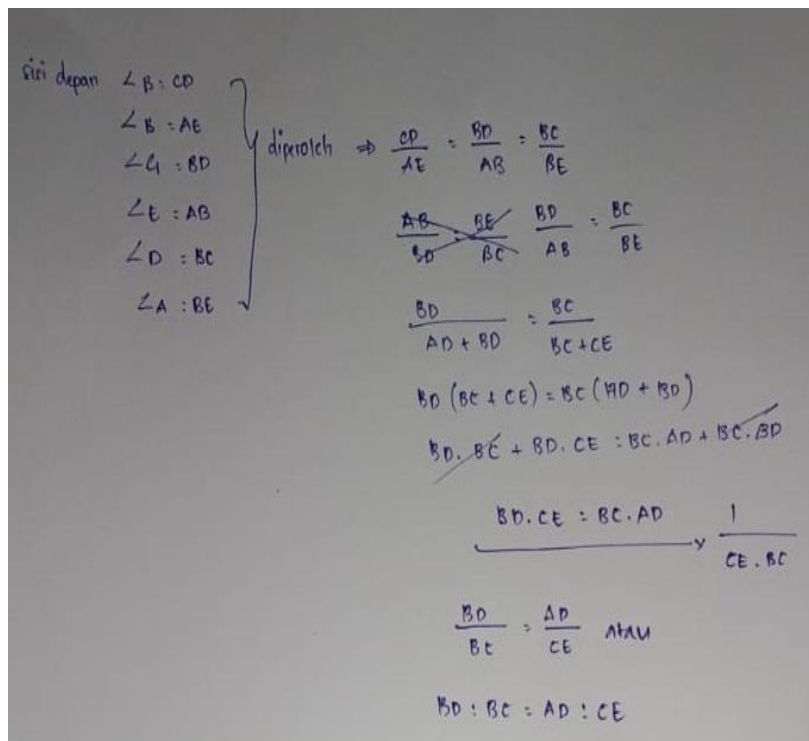 sisi depan ∠B : CD
∠B : AE
∠C : BD
∠E : AB
∠D : BC
∠A : BE
diperoleh ⇒ CD/AE = BD/AB = BC/BE
AB/BD = BE/BC BD/AB = BC/BE
BD/(AD + BD) = BC/(BC + CE)
BD (BC + CE) = BC (AD + BD)
BD. BC + BD. CE = BC. AD + BC. BD
BD. CE = BC. AD × 1/(CE. BC)
BD/BC = AD/CE atau
BD : BC = AD : CE